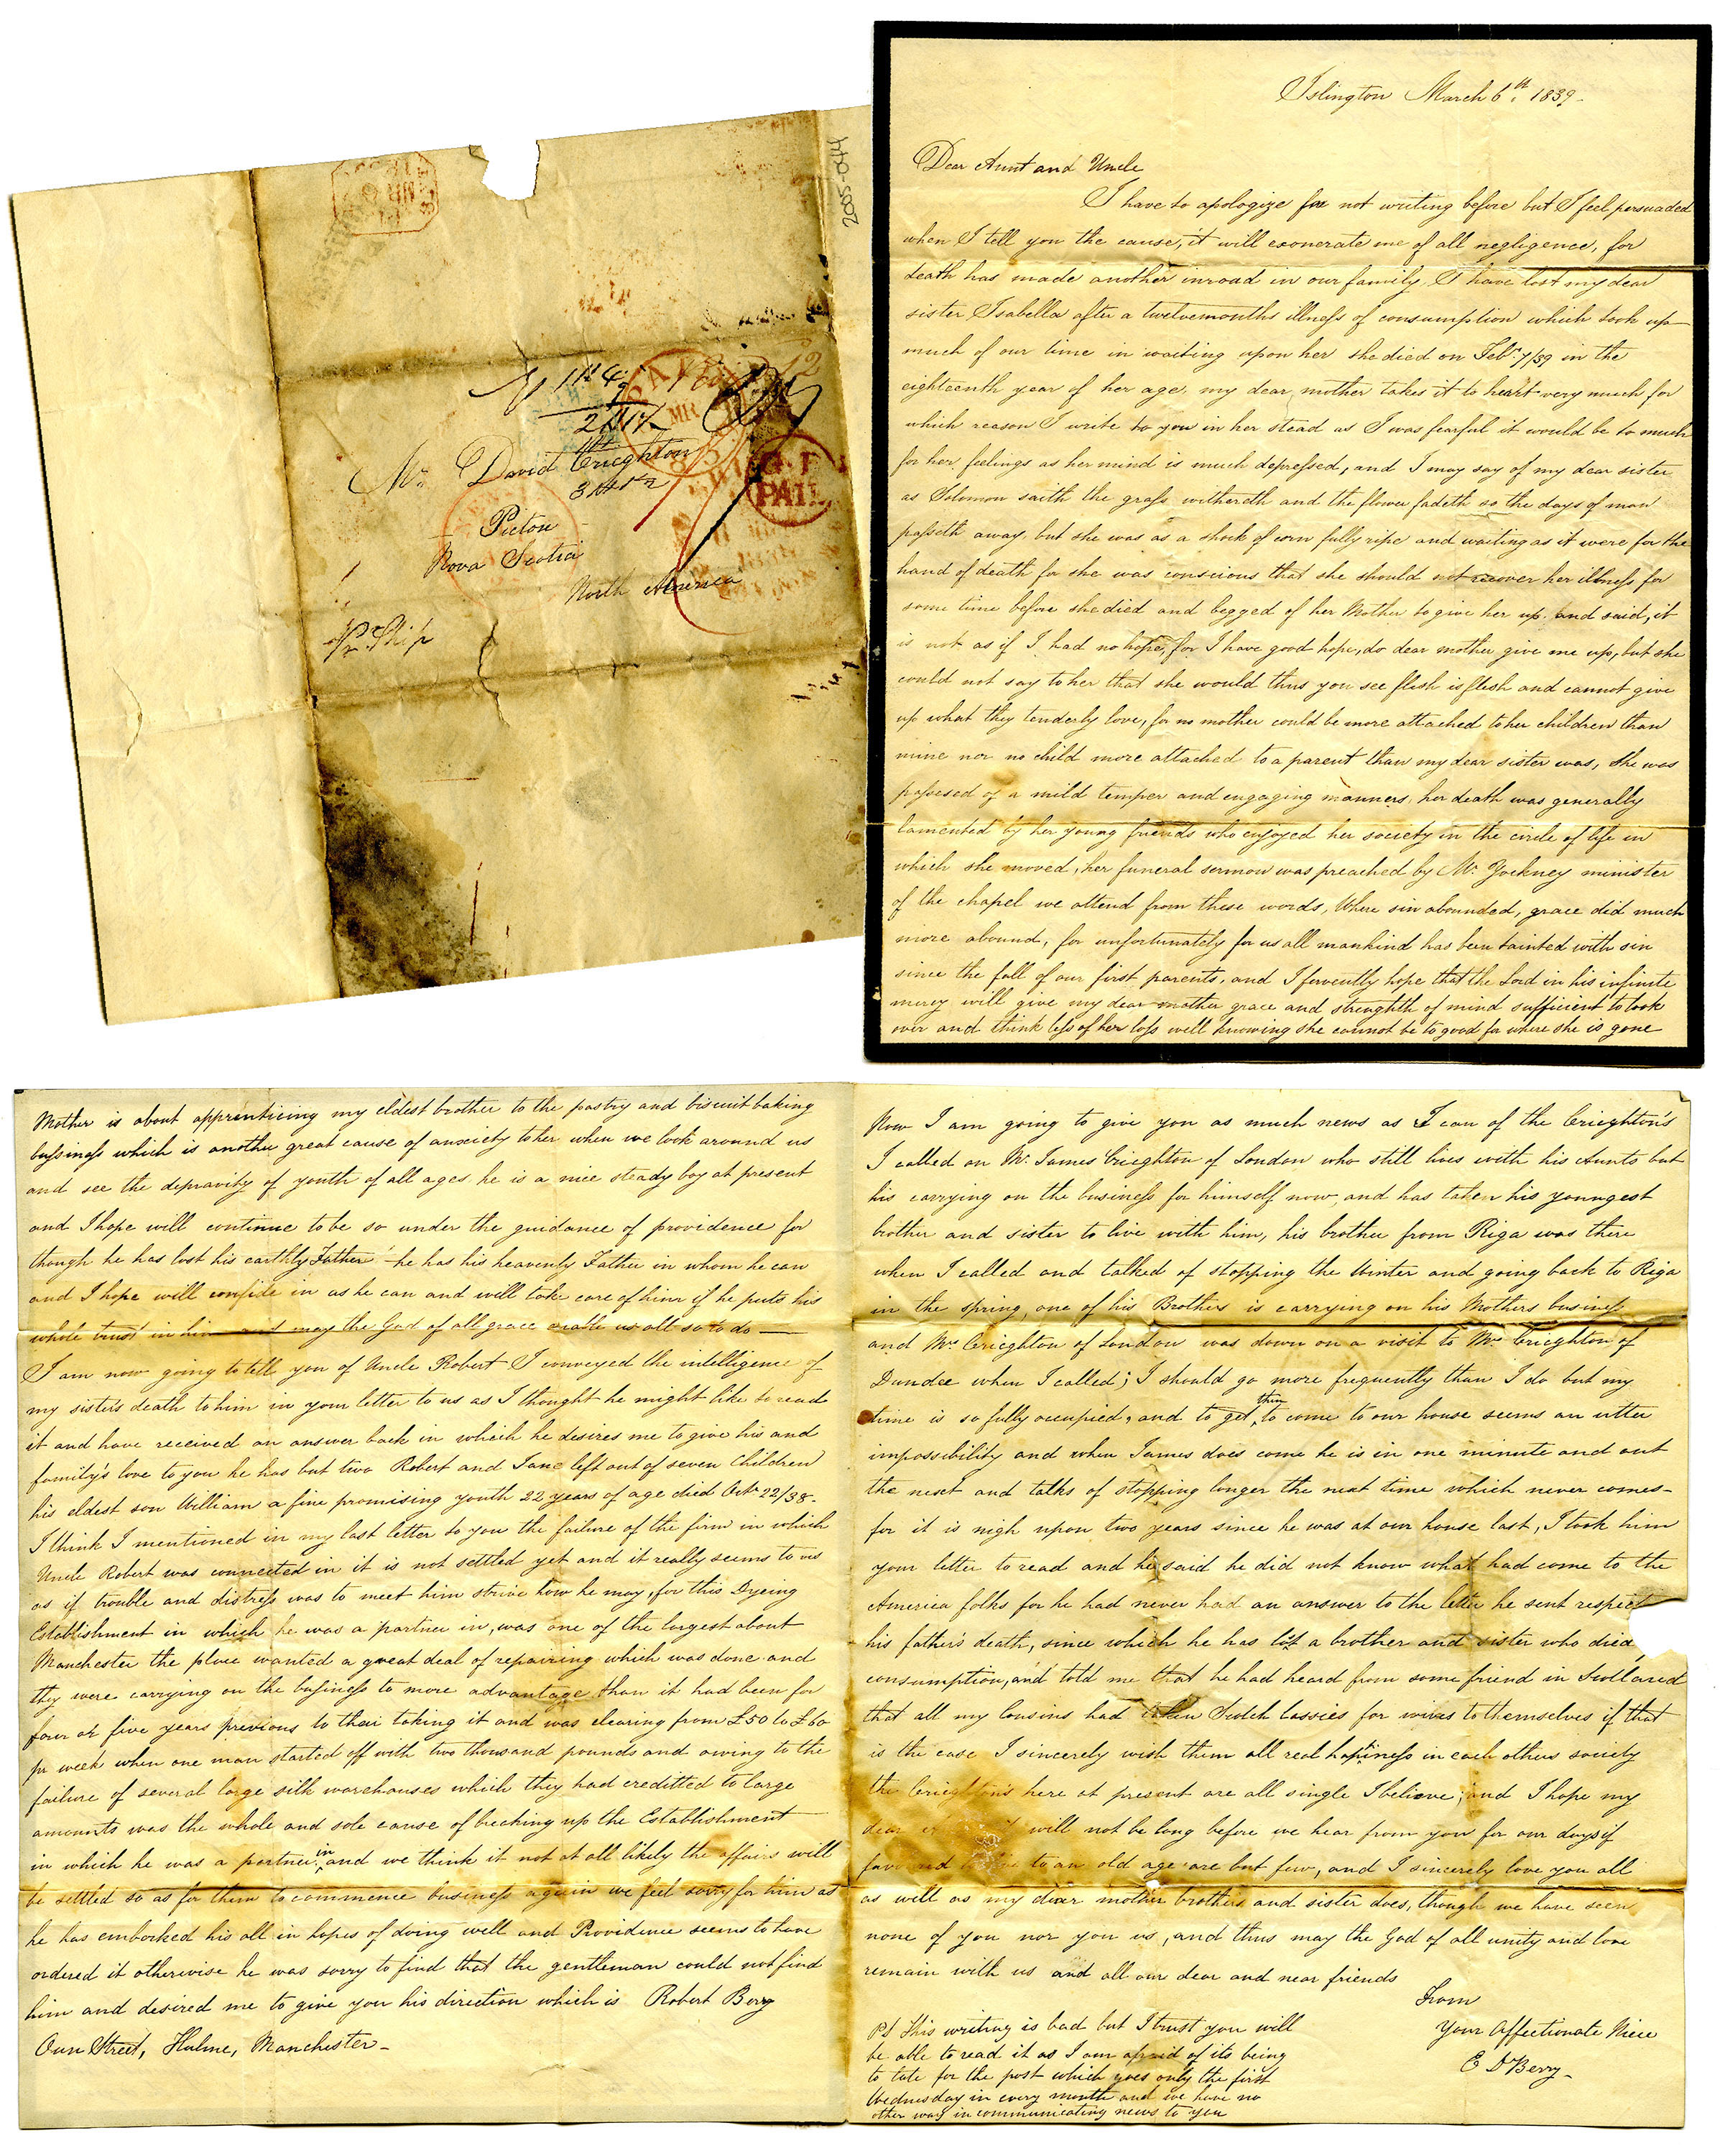 2005-044
11d 4
2
Mr. David Crieghton
Picton
Nova Scotia
North America
Pr Ship
PAID
Islington March 6th. 1839-
Dear Aunt and Uncle
I have to apologize for not writing before but I feel persuaded
when I tell you the cause, it will exonerate me of all negligence, for
death has made another inroad in our family I have lost my dear
sister Isabella after a twelvemonths illness of consumption which took up
much of our time in waiting upon her she died on Feby. 7/39 in the
eighteenth year of her age. my dear mother takes it to heart very much for
which reason I write to you in her stead as I was fearful it would be to much
for her feelings as her mind is much depressed, and I may say of my dear sister
as Solomon saith the grass withereth and the flower fadeth so the days of man
passeth away, but she was as a shock of corn fully ripe and waiting as it were for the
hand of death for she was conscious that she should not recover her illness for
some time before she died and begged of her Mother to give her up. and said, it
is not as if I had no hope, for I have good hope, do dear mother give me up, but she
could not say to her that she would thus you see flesh is flesh and cannot give
up what they tenderly love, for no mother could be more attached to her children than
mine nor no child more attached to a parent than my dear sister was, she was
possessed of a mild temper and engaging manners, her death was generally
lamented by her young friends who enjoyed her society in the circle of life in
which she moved, her funeral sermon was preached by Mr. Yockney minister
of the chapel we attend from these words, Where sin abounded, grace did much
more abound, for unfortunately for us all mankind has been tainted with sin
since the fall of our first parents, and I fervently hope that the Lord in his infinite
mercy will give my dear mother grace and strenghth of mind sufficient to look
over and think less of her loss well knowing she cannot be to good for where she is gone
Mother is about apprenticing my eldest brother to the pastry and biscuit baking
bussiness which is another great cause of anxiety to her when we look around us
and see the depravity of youth of all ages he is a nice steady boy at present
and I hope will continue to be so under the guidance of providence for
though he has lost his earthly Father he has his heavenly Father in whom he can
and I hope will confide in as he can and will take care of him if he puts his
whole trust in him and may the God of all grace enable us all so to do —
I am now going to tell you of Uncle Robert I conveyed the intelligence of
my sisters death to him in your letter to us as I thought he might like to read
it and have received an answer back in which he desires me to give his and
family's love to you he has but two Robert and Jane left out of seven Children
his eldest son William a fine promising youth 22 years of age died Octr 22/38-
I think I mentioned in my last letter to you the failure of the firm in which
Uncle Robert was connected in it is not settled yet and it really seems to us
as if trouble and distress was to meet him strive how he may, for this Dyeing
Establishment in which he was a partner in, was one of the largest about
Manchester the place wanted a great deal of repairing which was done and
they were carrying on the business to more advantage than it had been for
four or five years previous to their taking it and was clearing from £50 to £60
pr week when one man started off with two thousand pounds and owing to the
failure of several large silk warehouses which they had creditted to large
amounts was the whole and sole cause of breaking up the Establishment
in which he was a partner in, and we think it not at all likely the affairs will
be settled so as for them to commence business again we feel sorry for him as
he has embarked his all in hopes of doing well and Providence seems to have
ordered it otherwise he was sorry to find that the gentleman could not find
him and desired me to give you his direction which is Robert Berry
Street, Hulme, Manchester-
Now I am going to give you as much news as I can of the Crieghton's
I called on Mr. James Crieghton of London who still lives with his Aunts but
his carrying on the business for himself now, and has taken his youngest
brother and sister to live with him, his brother from Riga was there
when I called and talked of stopping the Winter and going back to Riga
in the spring, one of his Brothers is carrying on his Mothers business
and Mrs. Crieghton of London was down on a visit to Mrs. Crieghton of
Dundee when I called; I should go more frequently than I do but my
time is so fully occupied, and to get them to come to our house seems an utter
impossibility and when James does come he is in one minute and out
the next and talks of stopping longer the next time which never comes-
for it is nigh upon two years since he was at our house last, I took him
your letter to read and he said he did not know what had come to the
America folks for he had never had an answer to the letter he sent respect
his father's death, since which he has lost a brother and sister who died
consumption, and told me that he had heard from some friend in Scotland
that all my Cousins had taken Scotch lassies for wives to themselves if that
is the case I sincerely wish them all real happiness in each others society
the Crieghton's here at present are all single I believe; and I hope my
dear will not be long before we hear from you for our days if
to an old age are but few, and I sincerely love you all
as will as my dear mother brothers and sister does, though we have seen
none of you nor you us, and thus may the God of all unity and love
remain with us and all our dear and near friends
From
Your Affectionate Niece
E D Berry-
PS This writing is bad but I trust you will
be able to read it as I am afraid of its being
to late for the post which goes only the first
Wednesday in every month and we have no
other way in communicating news to you